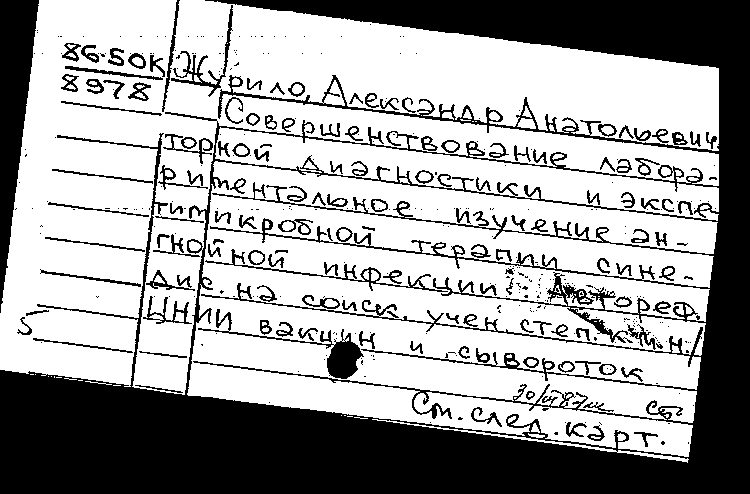 86-50К
8978
Журило, Александр Анатольевич.
Совершенствование лабора-
торной диагностики и экспе-
риментальное изучение ан-
тимикробной терапии сине-
гнойной инфекции: Автореф.
дис. на соиск. учен. степ. к.м.н./
ЦНИИ вакцин и сывороток
5
30/VI 87
См. след. карт.